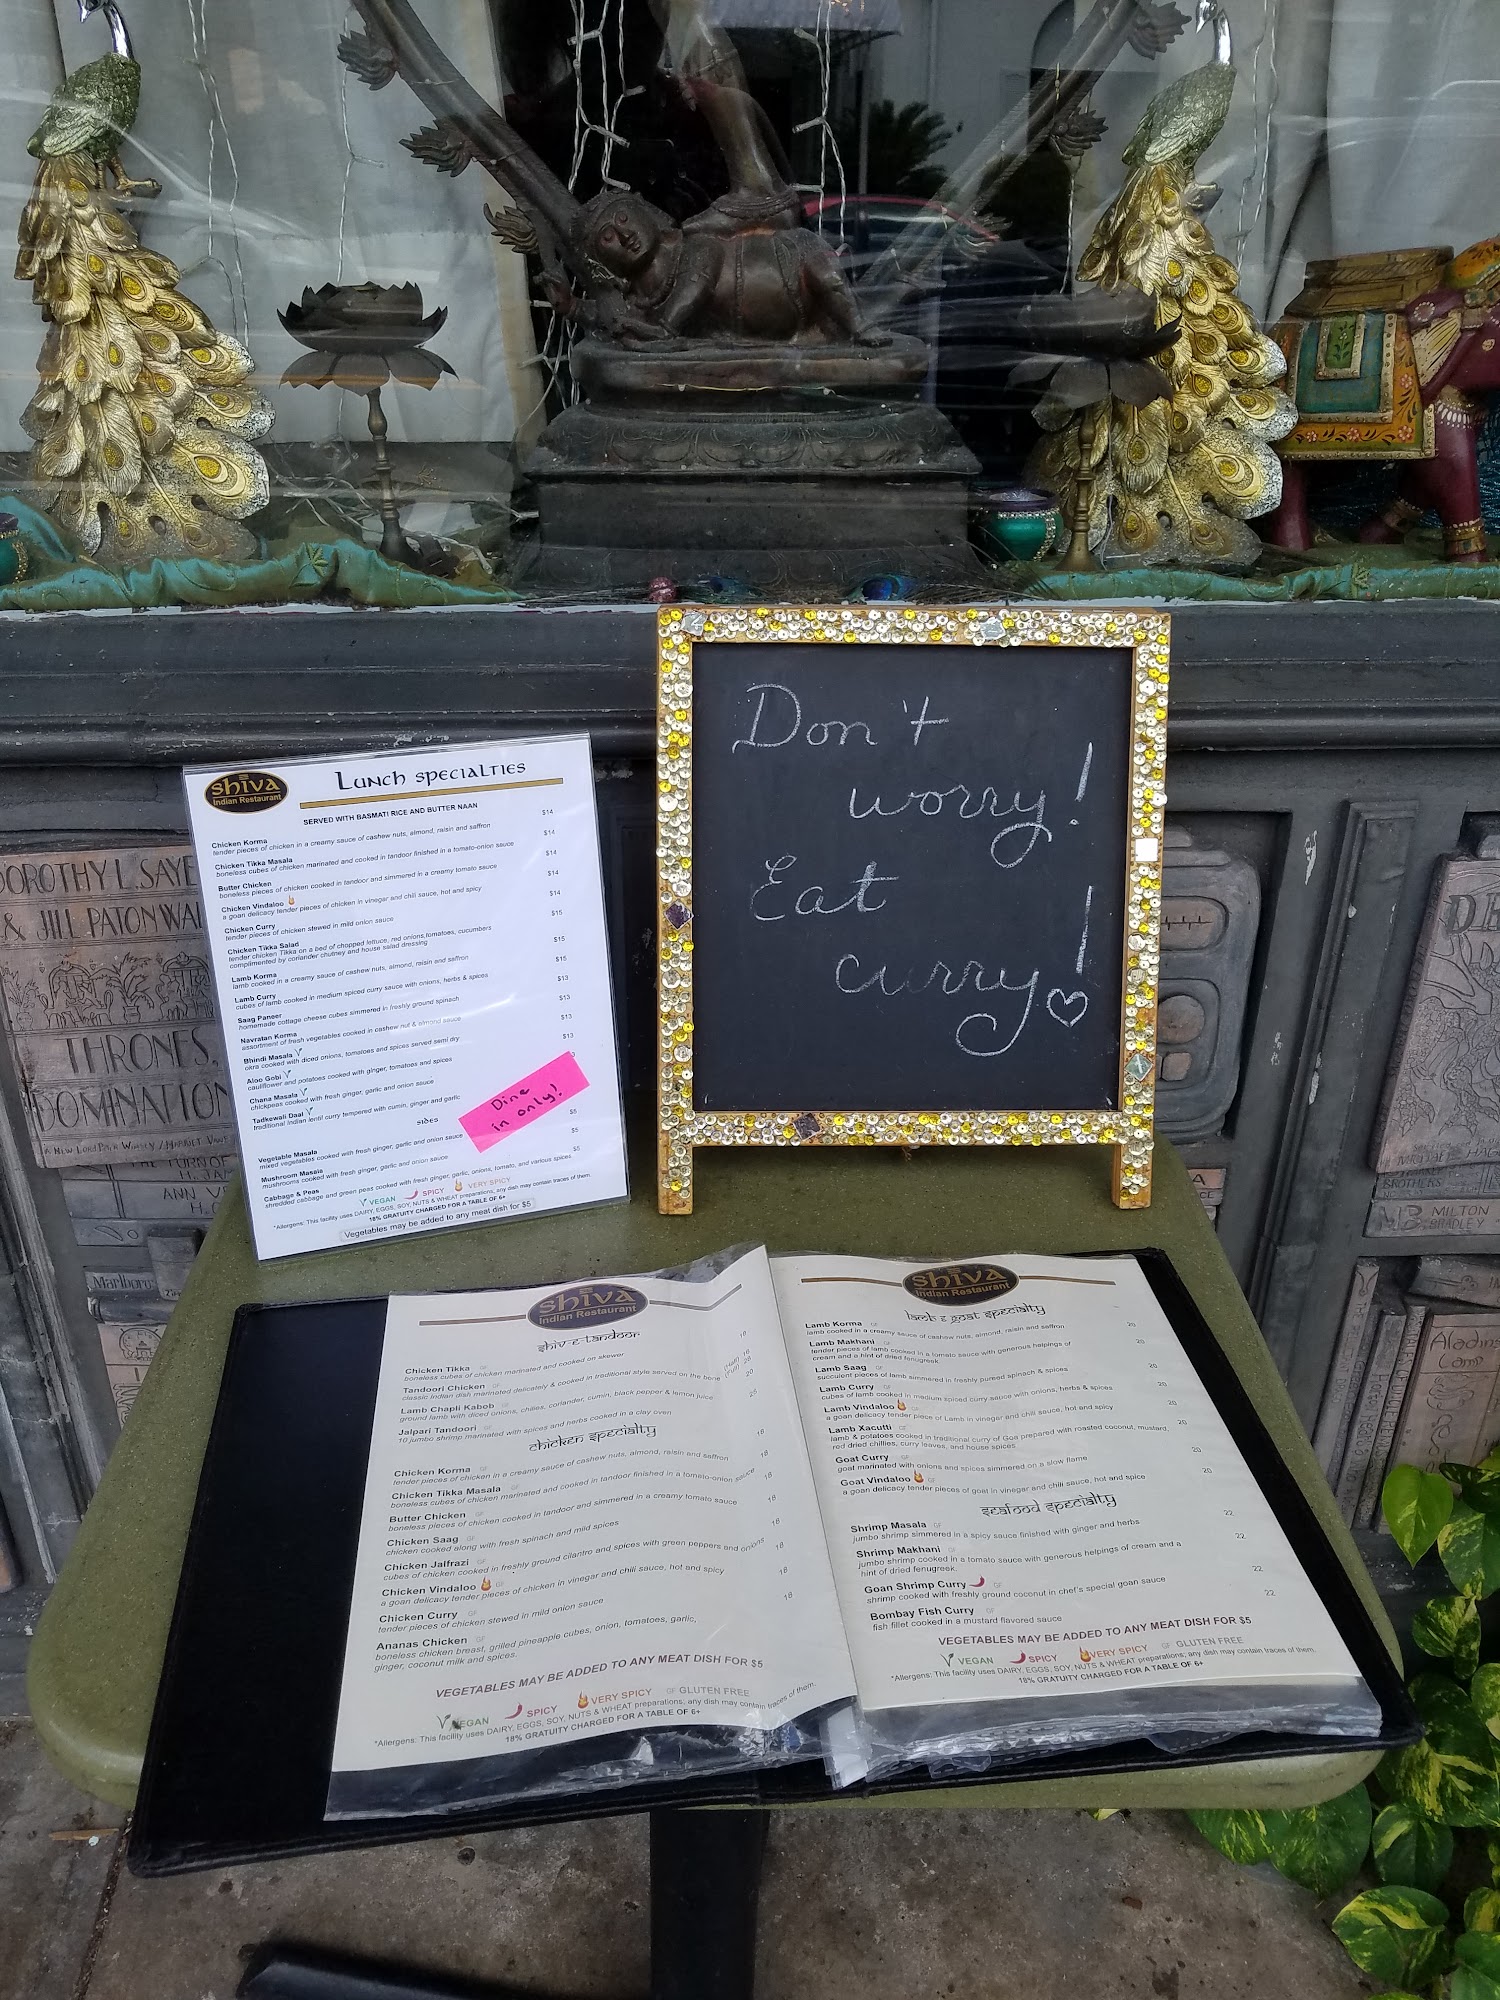 Don't
worry!
Eat
curry!
shiva
Indian Restaurant
Lunch specialties
SERVED WITH BASMATI RICE AND BUTTER NAAN
Chicken Korma $14
tender pieces of chicken in a creamy sauce of cashew nuts, almond, raisin and saffron
Chicken Tikka Masala $14
boneless cubes of chicken marinated and cooked in tandoor finished in a tomato-onion sauce
Butter Chicken $14
boneless pieces of chicken cooked in tandoor and simmered in a creamy tomato sauce
Chicken Vindaloo $14
a goan delicacy tender pieces of chicken in vinegar and chili sauce, hot and spicy
Chicken Curry $14
tender pieces of chicken stewed in mild onion sauce
Chicken Tikka Salad $15
tender chicken Tikka on a bed of chopped lettuce, red onions,tomatoes, cucumbers
complimented by coriander chutney and house salad dressing
Lamb Korma $15
lamb cooked in a creamy sauce of cashew nuts, almond, raisin and saffron
Lamb Curry $15
cubes of lamb cooked in medium spiced curry sauce with onions, herbs & spices
Saag Paneer $13
homemade cottage cheese cubes simmered in freshly ground spinach
Navratan Korma $13
assortment of fresh vegetables cooked in cashew nut & almond sauce
Bhindi Masala $13
okra cooked with diced onions, tomatoes and spices served semi dry
Aloo Gobi $13
cauliflower and potatoes cooked with ginger, tomatoes and spices
Chana Masala
chickpeas cooked with fresh ginger, garlic and onion sauce
Tadkewali Daal
traditional Indian lentil curry tempered with cumin, ginger and garlic
Dine
in only!
sides
Vegetable Masala $5
mixed vegetables cooked with fresh ginger, garlic and onion sauce
Mushroom Masala $5
mushrooms cooked with fresh ginger, garlic and onion sauce
Cabbage & Peas $5
shredded cabbage and green peas cooked with fresh ginger, garlic, onions, tomato, and various spices
VEGAN SPICY VERY SPICY
*Allergens: This facility uses DAIRY, EGGS, SOY, NUTS & WHEAT preparations; any dish may contain traces of them.
18% GRATUITY CHARGED FOR A TABLE OF 6+
Vegetables may be added to any meat dish for $5
shiva
Indian Restaurant
shiv-e-tandoor
Chicken Tikka GF 18
boneless cubes of chicken marinated and cooked on skewer
Tandoori Chicken GF (Half) 16
classic Indian dish marinated delicately & cooked in traditional style served on the bone (Full) 28
Lamb Chapli Kabob GF 20
ground lamb with diced onions, chilies, coriander, cumin, black pepper & lemon juice
Jalpari Tandoori GF 25
10 jumbo shrimp marinated with spices and herbs cooked in a clay oven
chicken specialty
Chicken Korma GF 18
tender pieces of chicken in a creamy sauce of cashew nuts, almond, raisin and saffron
Chicken Tikka Masala GF 18
boneless cubes of chicken marinated and cooked in tandoor finished in a tomato-onion sauce
Butter Chicken GF 18
boneless pieces of chicken cooked in tandoor and simmered in a creamy tomato sauce
Chicken Saag GF 18
chicken cooked along with fresh spinach and mild spices
Chicken Jalfrazi GF 18
cubes of chicken cooked in freshly ground cilantro and spices with green peppers and onions
Chicken Vindaloo GF 18
a goan delicacy tender pieces of chicken in vinegar and chili sauce, hot and spicy
Chicken Curry GF 18
tender pieces of chicken stewed in mild onion sauce
Ananas Chicken GF 18
boneless chicken breast, grilled pineapple cubes, onion, tomatoes, garlic,
ginger, coconut milk and spices.
VEGETABLES MAY BE ADDED TO ANY MEAT DISH FOR $5
VEGAN SPICY VERY SPICY GF GLUTEN FREE
*Allergens: This facility uses DAIRY, EGGS, SOY, NUTS & WHEAT preparations; any dish may contain traces of them.
18% GRATUITY CHARGED FOR A TABLE OF 6+
shiva
Indian Restaurant
lamb & goat specialty
Lamb Korma GF 20
lamb cooked in a creamy sauce of cashew nuts, almond, raisin and saffron
Lamb Makhani GF 20
tender pieces of lamb cooked in a tomato sauce with generous helpings of
cream and a hint of dried fenugreek.
Lamb Saag GF 20
succulent pieces of lamb simmered in freshly pureed spinach & spices
Lamb Curry GF 20
cubes of lamb cooked in medium spised curry sauce with onions, herbs & spices
Lamb Vindaloo GF 20
a goan delicacy tender piece of Lamb in vinegar and chili sauce, hot and spicy
Lamb Xacutti GF 20
lamb & potatoes cooked in traditional curry of Goa prepared with roasted coconut, mustard,
red dried chillies, curry leaves, and house spices
Goat Curry GF 20
goat marinated with onions and spices simmered on a slow flame
Goat Vindaloo GF 20
a goan delicacy tender pieces of goat in vinegar and chili sauce, hot and spice
seafood specialty
Shrimp Masala GF 22
jumbo shrimp simmered in a spicy sauce finished with ginger and herbs
Shrimp Makhani GF 22
jumbo shrimp cooked in a tomato sauce with generous helpings of cream and a
hint of dried fenugreek.
Goan Shrimp Curry GF 22
shrimp cooked with freshly ground coconut in chef's special goan sauce
Bombay Fish Curry GF 22
fish fillet cooked in a mustard flavored sauce
VEGETABLES MAY BE ADDED TO ANY MEAT DISH FOR $5
VEGAN SPICY VERY SPICY GF GLUTEN FREE
*Allergens: This facility uses DAIRY, EGGS, SOY, NUTS & WHEAT preparations; any dish may contain traces of them.
18% GRATUITY CHARGED FOR A TABLE OF 6+
DOROTHY L. SAYE
& JILL PATON WAL
THRONES,
DOMINATION
THE TURN OF
ANN
No
Marlboro
MILTON
BRADLEY
BROTHERS
Aladins
Lamp